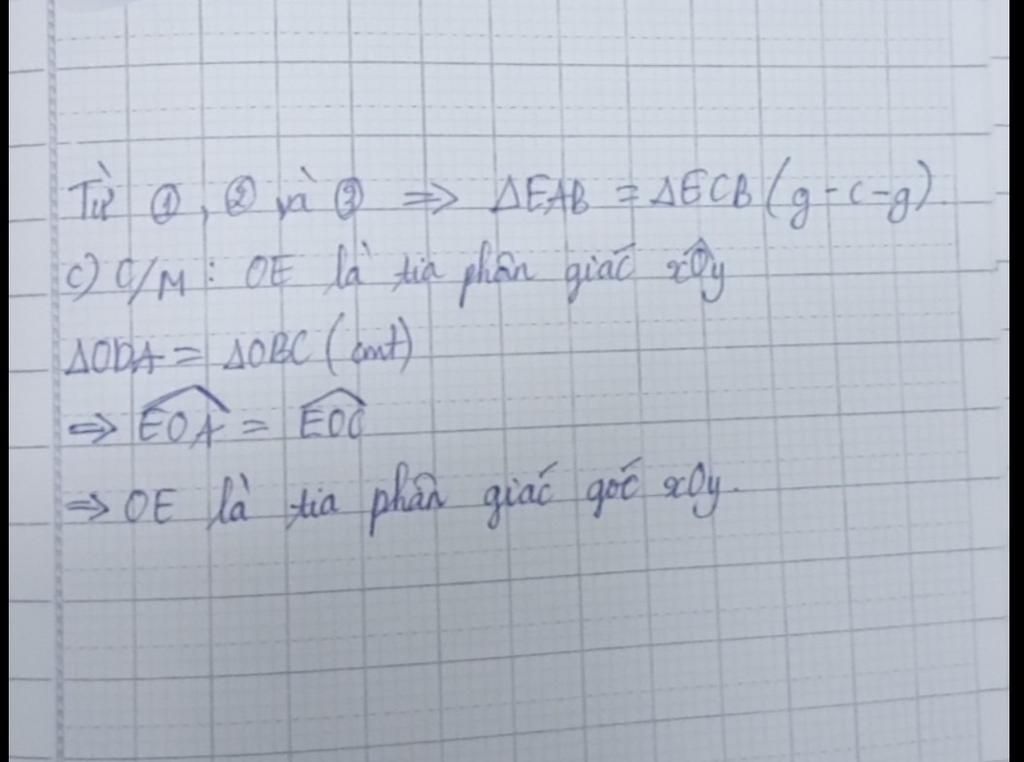 Từ ①, ② và ③ => ΔEAB = ΔECB (g-c-g).
c) C/M: OE là tia phân giác xÔy
ΔODA = ΔOBC (cmt)
=> \widehat{EOA} = \widehat{EOC}
=> OE là tia phân giác góc xOy.